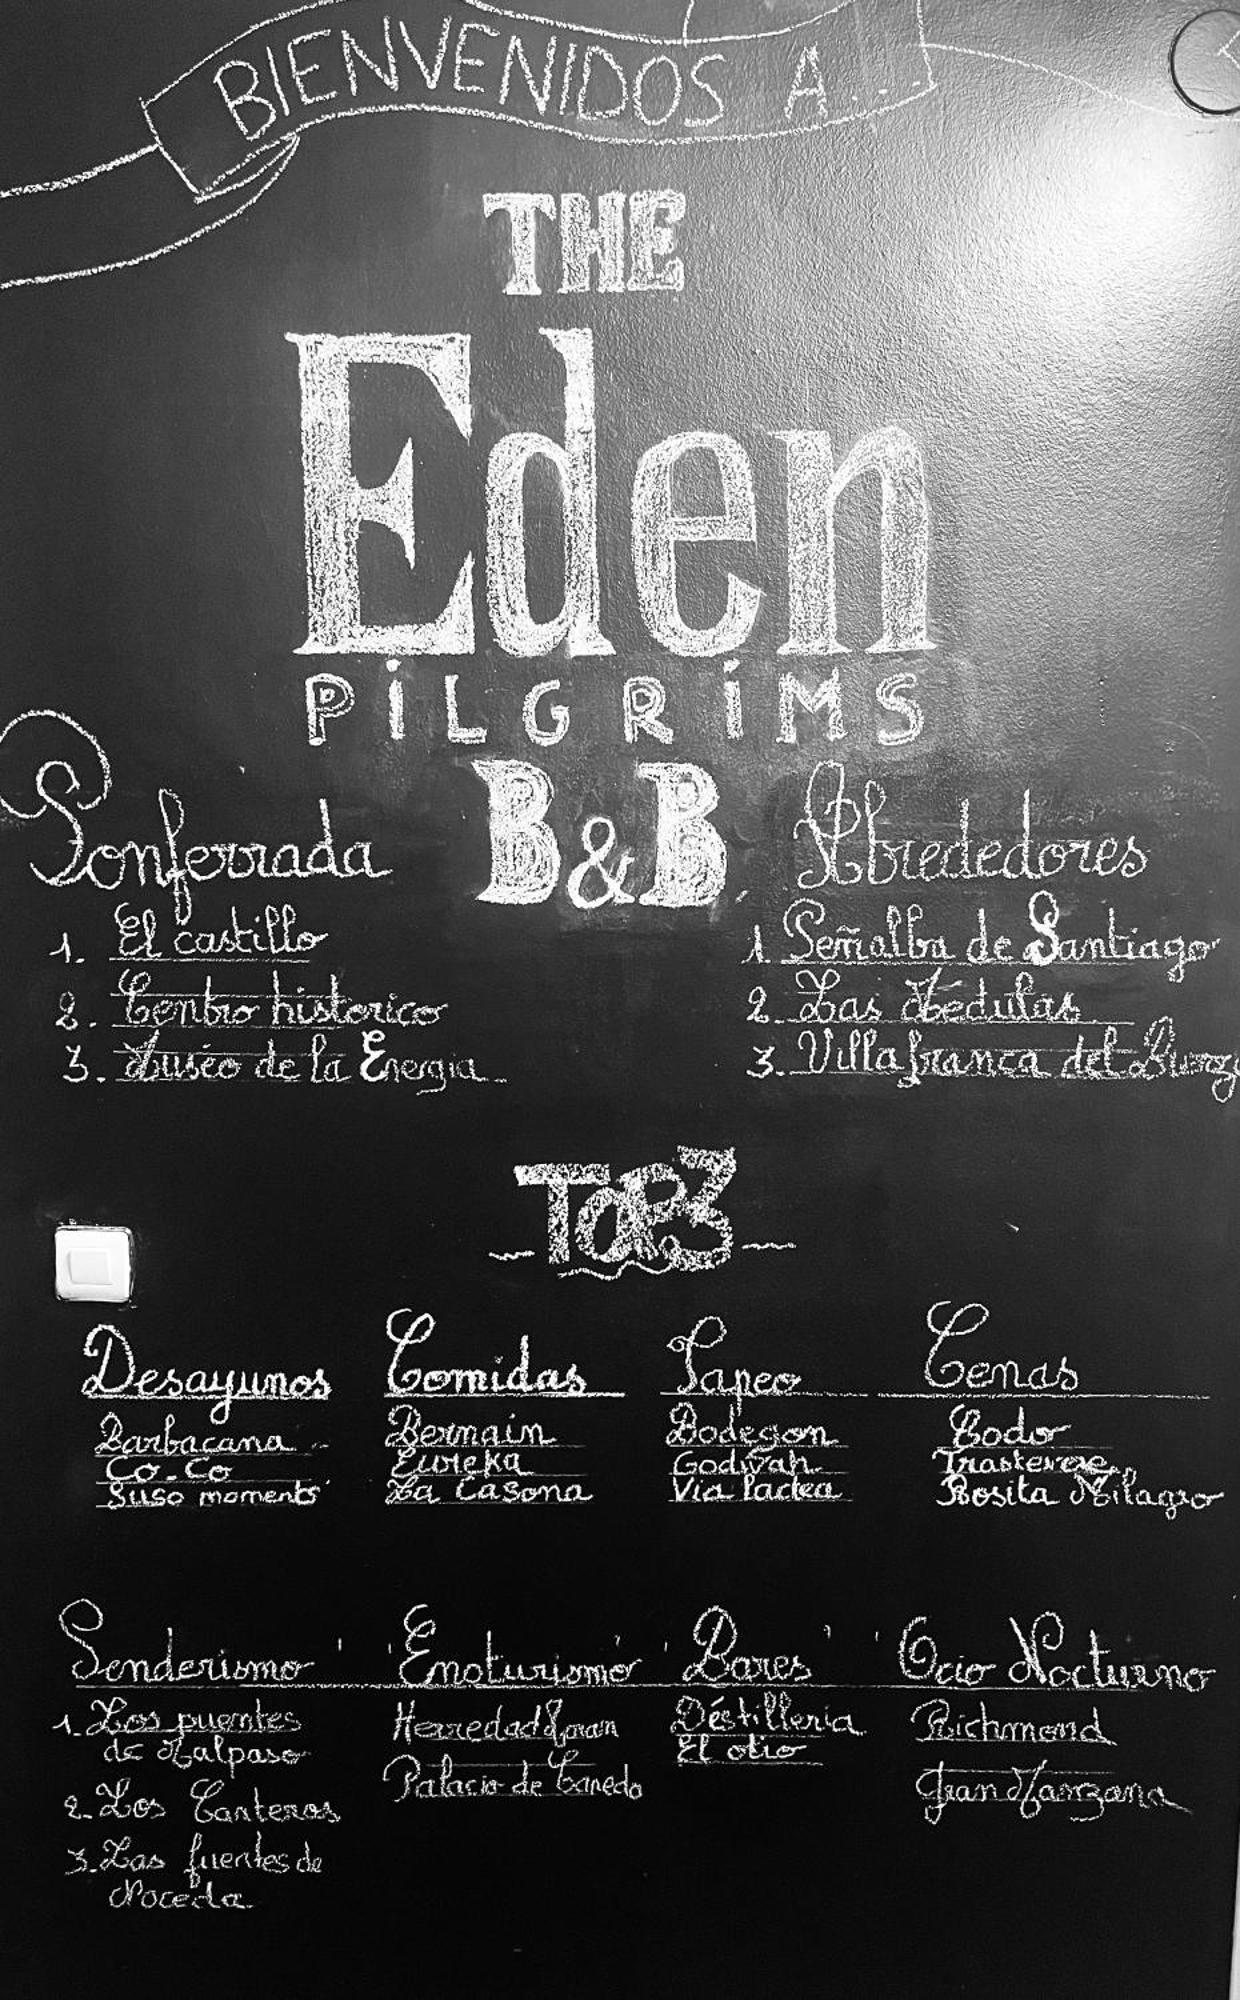 BIENVENIDOS A...
THE
Eden
PILGRIMS
B&B
Ponferrada
1. El castillo
2. Centro historico
3. Museo de la Energia
Alrededores
1. Peñalba de Santiago
2. Las Médulas
3. Villafranca del Bierzo
TOP3
Desayunos
Barbacana
Co-Co
Suso momento
Comidas
Bermain
Eureka
La Casona
Tapeo
Bodegon
Godivah
Via lactea
Cenas
Codo
Trastevere
Rosita Milagro
Senderismo
1. Los puentes
de Malpaso
2. Los Canteros
3. Las fuentes de
Noceda
Enoturismo
Palacio de Canedo
Bares
Déstilleria
El otio
Ocio Nocturno
Richmond
Gran Manzana